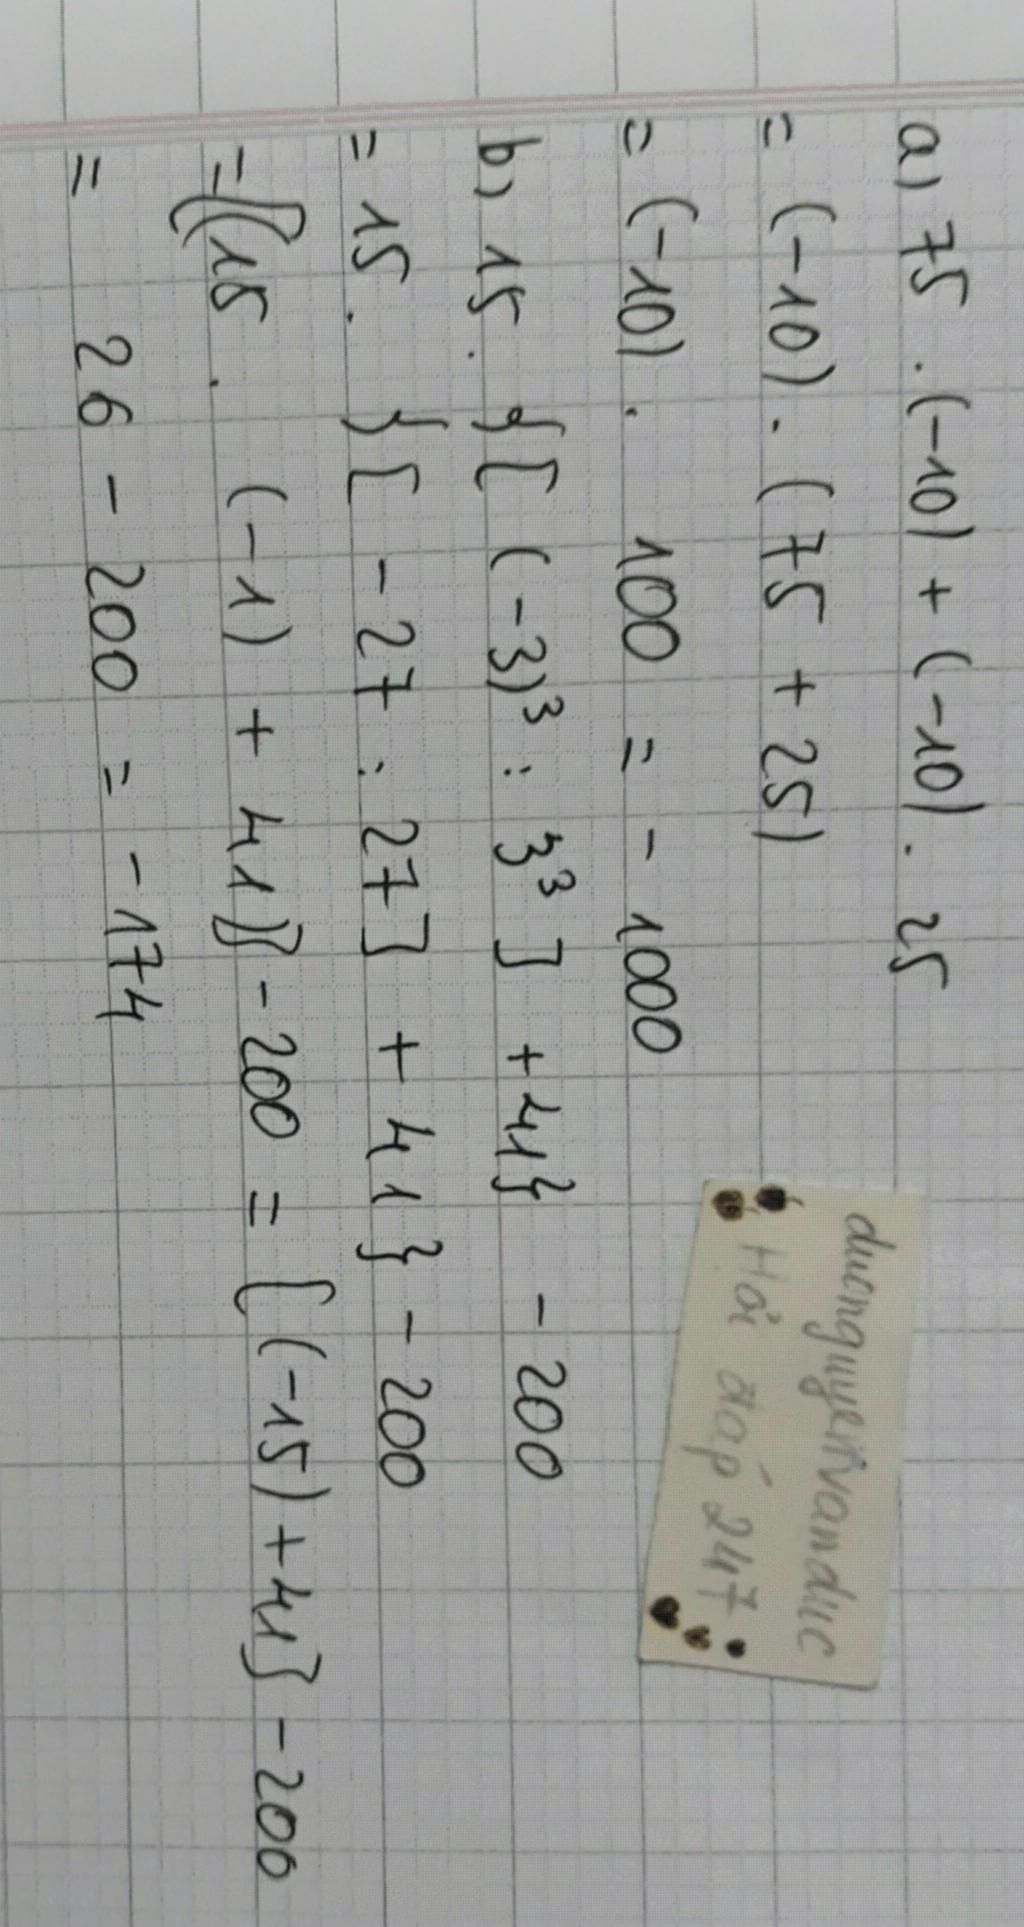 a) 75 . (-10) + (-10) . 25
= (-10) . (75 + 25)
= (-10) . 100 = - 1000
b) 15 . {[ (-3)³ : 3³ ] + 41} - 200
= 15 . {[ - 27 : 27 ] + 41 } - 200
= {(15 . (-1) + 41)} - 200 = [ (-15) + 41] - 200
= 26 - 200 = - 174
duongnguyenvanduc
Hỏi đáp 247